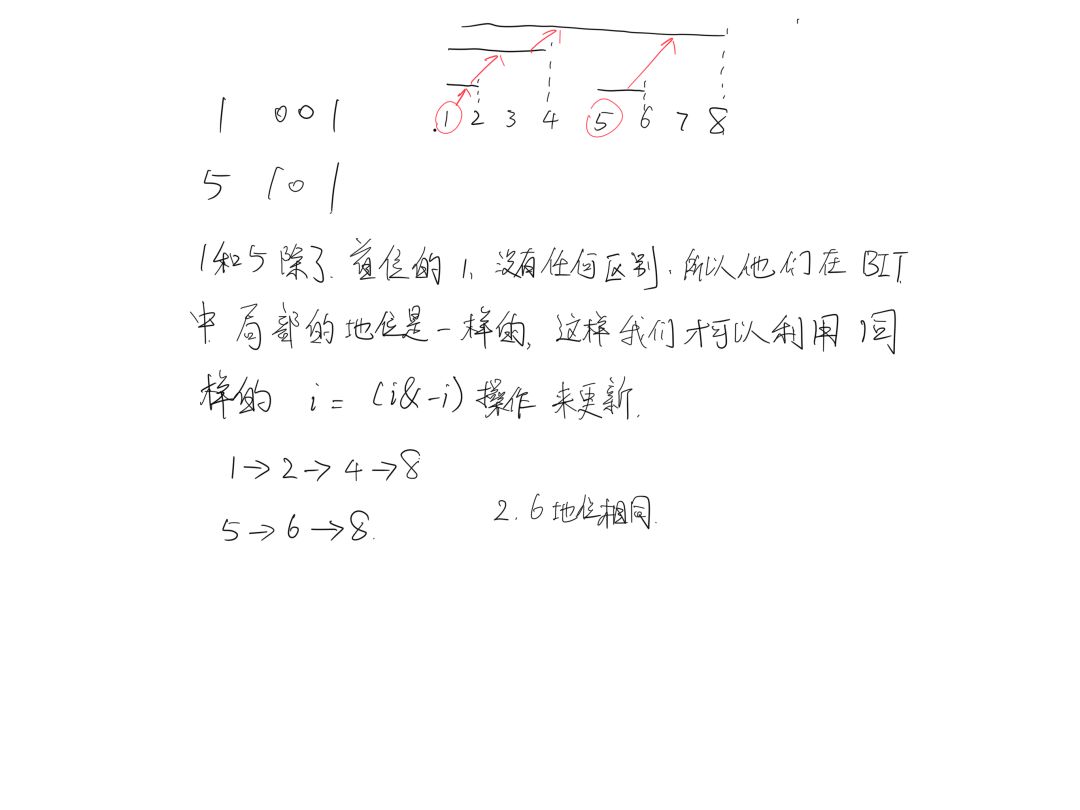 1 2 3 4 5 6 7 8
1 001
5 101
1和5除了.首位的1,没有任何区别,所以他们在BIT
中局部的地位是一样的,这样我们才可以利用同
样的 i = (i&-i) 操作来更新.
1→2→4→8
5→6→8.
2.6地位相同.